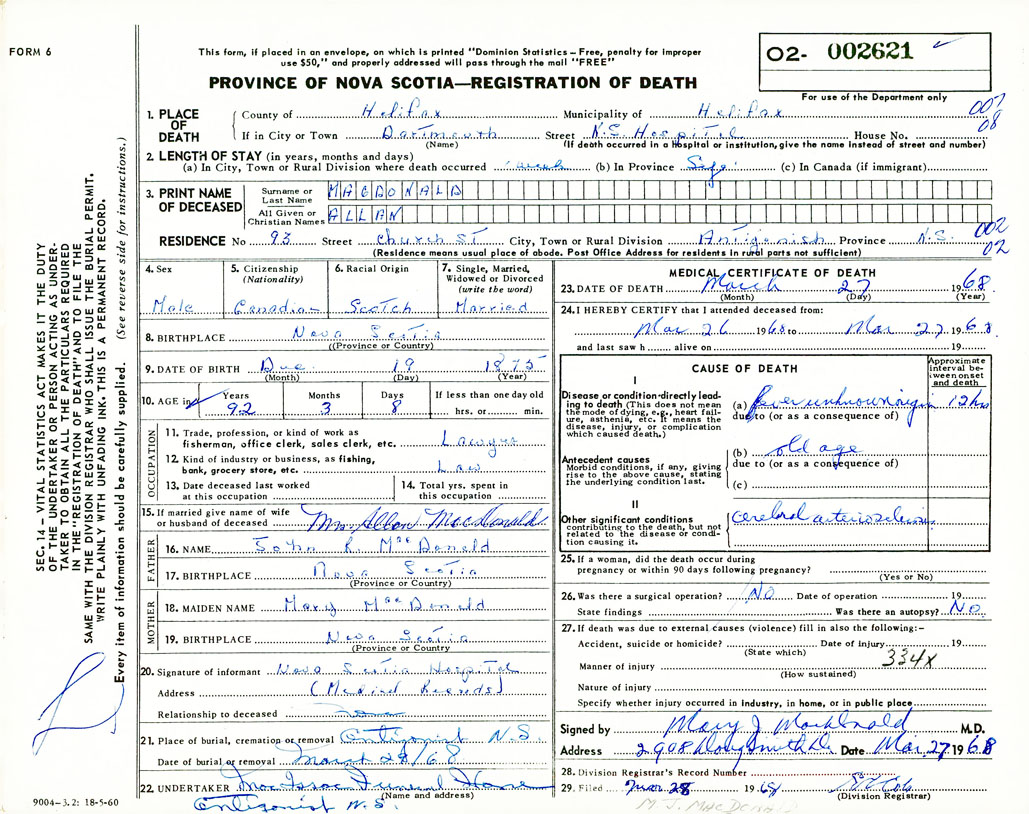 FORM 6
This form, if placed in an envelope, on which is printed "Dominion Statistics – Free, penalty for improper
use $50," and properly addressed will pass through the mail "FREE"
O2- 002621
PROVINCE OF NOVA SCOTIA—REGISTRATION OF DEATH
For use of the Department only
1. PLACE OF DEATH
County of Halifax Municipality of Halifax 007
If in City or Town Dartmouth Street N.S. Hospital House No. 08
(Name) (If death occurred in a Hospital or institution, give the name instead of street and number)
2. LENGTH OF STAY (in years, months and days)
(a) In City, Town or Rural Division where death occurred 1 week (b) In Province Life (c) In Canada (if immigrant)
3. PRINT NAME OF DECEASED
Surname or Last Name MACDONALD
All Given or Christian Names ALLAN
RESIDENCE No 93 Street Church St City, Town or Rural Division Antigonish Province N.S. 002
02
(Residence means usual place of abode. Post Office Address for residents in rural parts not sufficient)
4. Sex Male
5. Citizenship (Nationality) Canadian
6. Racial Origin Scotch
7. Single, Married, Widowed or Divorced (write the word) Married
8. BIRTHPLACE Nova Scotia
((Province or Country)
9. DATE OF BIRTH Dec. 19 1875
(Month) (Day) (Year)
10. AGE in Years 92 Months 3 Days 8 If less than one day old hrs. or min.
OCCUPATION
11. Trade, profession, or kind of work as
fisherman, office clerk, sales clerk, etc. Lawyer
12. Kind of industry or business, as fishing,
bank, grocery store, etc. Law
13. Date deceased last worked
at this occupation
14. Total yrs. spent in
this occupation
15. If married give name of wife
or husband of deceased Mrs. Allan MacDonald
FATHER
16. NAME John R. MacDonald
17. BIRTHPLACE Nova Scotia
(Province or Country)
MOTHER
18. MAIDEN NAME Mary MacDonald
19. BIRTHPLACE Nova Scotia
(Province or Country)
20. Signature of informant Nova Scotia Hospital
Address (Medical Records)
Relationship to deceased none
21. Place of burial, cremation or removal Antigonish N.S.
Date of burial or removal March 28/68
22. UNDERTAKER MacIsaac Funeral Home
(Name and address)
Antigonish N.S.
9004–3.2: 18-5-60
MEDICAL CERTIFICATE OF DEATH
23. DATE OF DEATH March 27 1968
(Month) (Day) (Year)
24. I HEREBY CERTIFY that I attended deceased from:
Mar 26 1968 to Mar 27 1968
and last saw h alive on 19
CAUSE OF DEATH
Approximate interval between onset and death
I
Disease or condition directly leading to death (This does not mean the mode of dying, e.g., heart failure, asthenia, etc. It means the disease, injury, or complication which caused death.)
(a) fever unknown origin 12 hrs
due to (or as a consequence of)
Antecedent causes
Morbid conditions, if any, giving rise to the above cause, stating the underlying condition last.
(b) old age
due to (or as a consequence of)
(c)
II
Other significant conditions
contributing to the death, but not related to the disease or condition causing it.
cerebral arteriosclerosis
25. If a woman, did the death occur during
pregnancy or within 90 days following pregnancy?
(Yes or No)
26. Was there a surgical operation? No Date of operation 19
State findings Was there an autopsy? No
27. If death was due to external causes (violence) fill in also the following:–
Accident, suicide or homicide? Date of injury 19
(State which) 334x
Manner of injury
(How sustained)
Nature of injury
Specify whether injury occurred in industry, in home, or in public place
Signed by Mary J MacDonald M.D.
Address 2908 Doug Smith Dr. Date Mar. 27 1968
28. Division Registrar's Record Number
29. Filed Mar. 28 1968
(Division Registrar)
M. J. MACDONALD
SEC. 14 – VITAL STATISTICS ACT MAKES IT THE DUTY
OF THE UNDERTAKER OR PERSON ACTING AS UNDER-
TAKER TO OBTAIN ALL THE PARTICULARS REQUIRED
IN THE "REGISTRATION OF DEATH" AND TO FILE THE
SAME WITH THE DIVISION REGISTRAR WHO SHALL ISSUE THE BURIAL PERMIT.
WRITE PLAINLY WITH UNFADING INK. THIS IS A PERMANENT RECORD.
Every item of information should be carefully supplied. (See reverse side for instructions.)